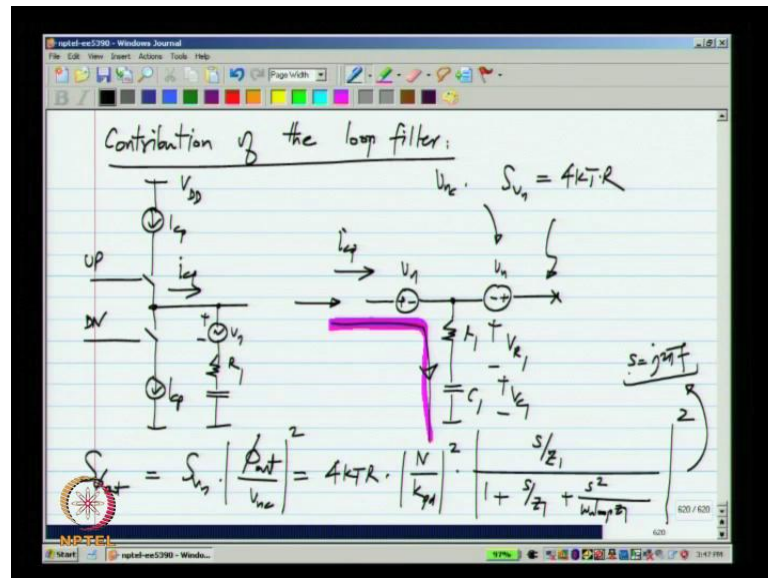 nptel-ee5390 - Windows Journal
File Edit View Insert Actions Tools Help
Page Width
B I
Contribution of the loop filter:
V_DD
I_cp
UP
i_cp
DN
+ v_n -
R_1
I_cp
v_nc . S_vn = 4kT·R
i_cp
v_n
+ -
v_n
- +
R_1 + V_R1 -
C_1 + V_C1 -
s = j2πf
S_φout = S_vn · |φ_out / v_nc|^2 = 4kTR · |N / k_pd|^2 · |(s/z_1) / (1 + s/z_1 + s^2/(ω_u,loop z_1))|^2
620 / 620
620
NPTEL
Start
nptel-ee5390 - Windo...
97%
3:47 PM